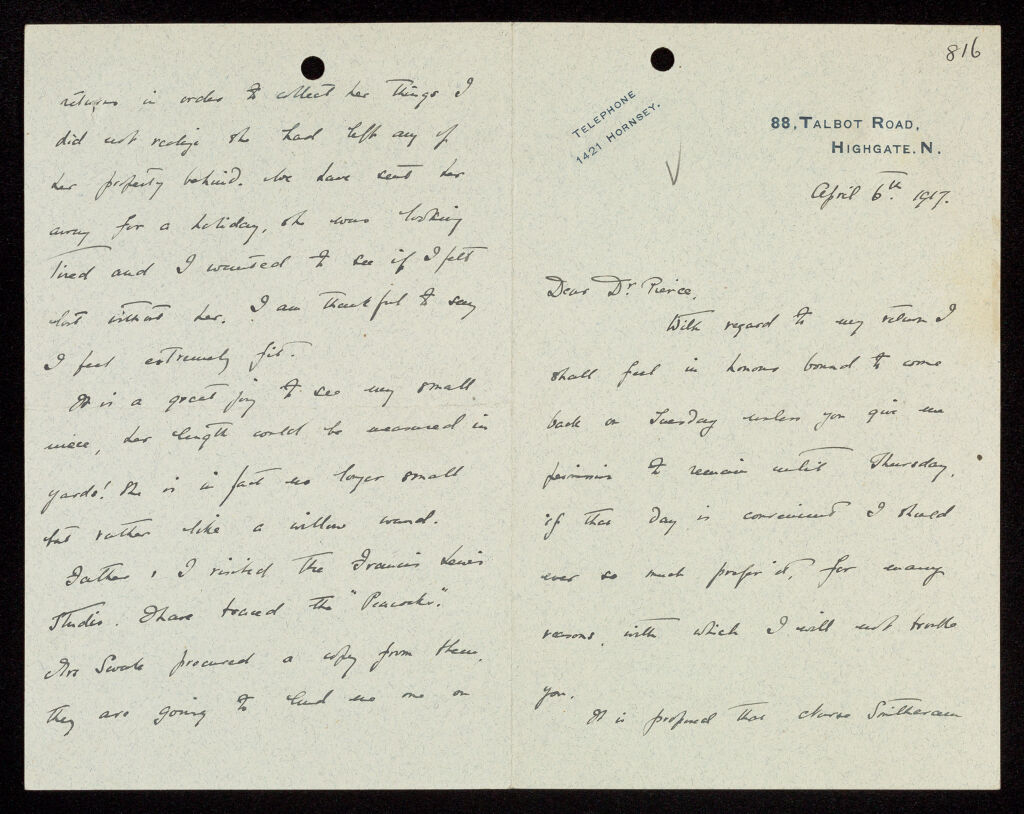 816
TELEPHONE
1421 HORNSEY.
88, TALBOT ROAD,
HIGHGATE. N.
April 6th. 1917.
Dear Dr. Pierce,
With regard to my return I
shall feel in honour bound to come
back on Tuesday unless you give me
permission to remain until Thursday,
if that day is convenient I should
ever so much prefer it, for many
reasons, with which I will not trouble
you.
It is proposed that Nurse
returns in order to collect her things I
did not realize she had left any of
her property behind. We have sent her
away for a holiday, she was looking
tired and I wanted to see if I felt
lost without her. I am thankful to say
I feel extremely fit.
It is a great joy to see my small
niece, her length could be measured in
yards! She is in fact no longer small
but rather like a willow wand.
Father & I visited the Francis Lewis
Studio. I have traced the "Peacocks".
Mrs procured a copy from them,
they are going to lend me one on